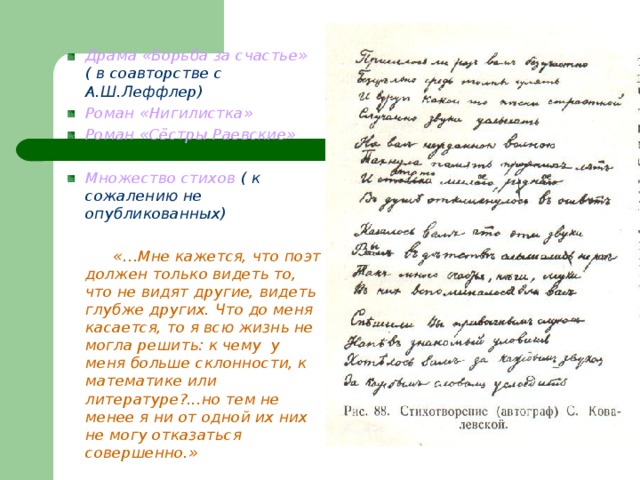 Драма «Борьба за счастье»
( в соавторстве с
А.Ш.Леффлер)
Роман «Нигилистка»
Роман «Сёстры Раевские»
Множество стихов ( к
сожалению не
опубликованных)
«…Мне кажется, что поэт
должен только видеть то,
что не видят другие, видеть
глубже других. Что до меня
касается, то я всю жизнь не
могла решить: к чему у
меня больше склонности, к
математике или
литературе?...но тем не
менее я ни от одной их них
не могу отказаться
совершенно.»
Пришлось ли разъ вамъ безучастно
Безцельно средь толпы гулять
И вдругъ какой то песни страстной
Случайно звуки услыхать
На васъ нежданною волною
Пахнула память прежнихъ летъ
И что то милое, родное
Въ душе откликнулось въ ответъ
Казалось вамъ что эти звуки
Вы въ детстве слышали не разъ
Такъ много счастья, неги, муки
Въ них вспоминалося для васъ
Спешили Вы привычнымъ слухомъ
Напевъ знакомый уловить
Хотелось вамъ за каждымъ звукомъ
За каждымъ словомъ уследить
Рис. 88. Стихотворение (автограф) С. Кова-
левской.